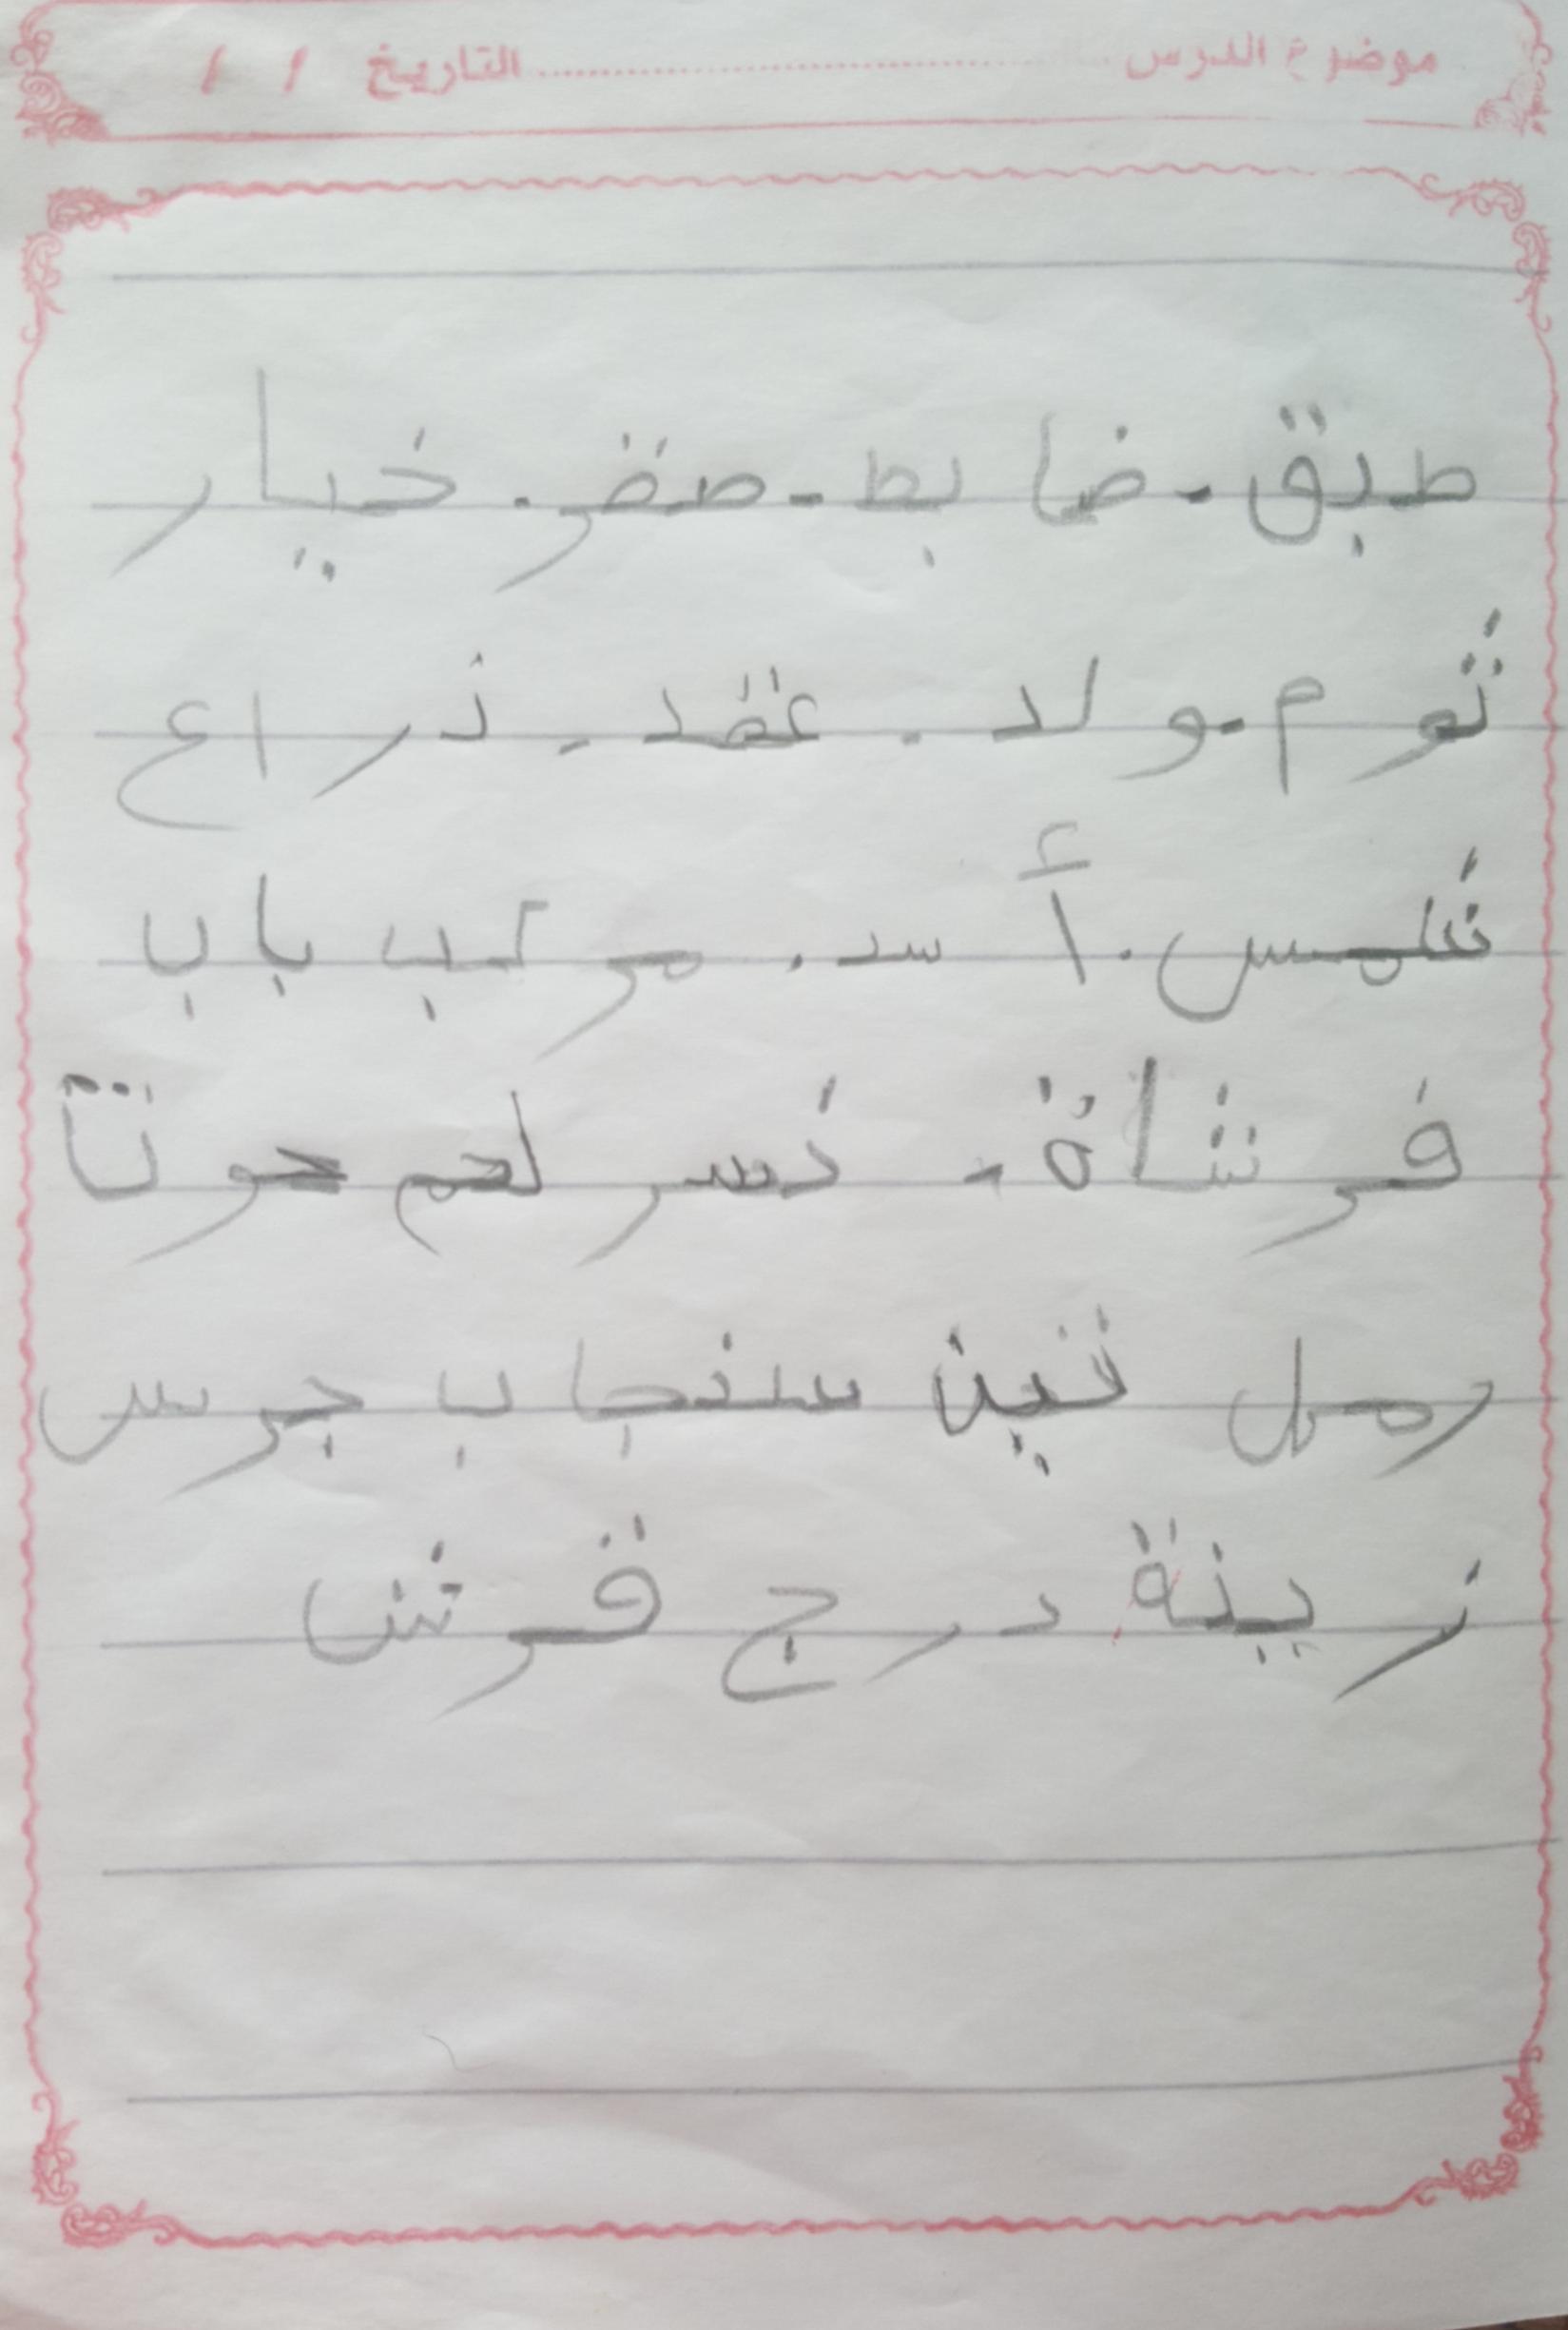 موضوع الدرس ........................ التاريخ / /
طبق - ضابط - صقر . خيار
ثوم - ولد . عقد - ذراع
شمس . أسد . مركب باب
فرشاة - نسر لحم حوت
رمل تنين سنجاب جرس
زينة درج قرش